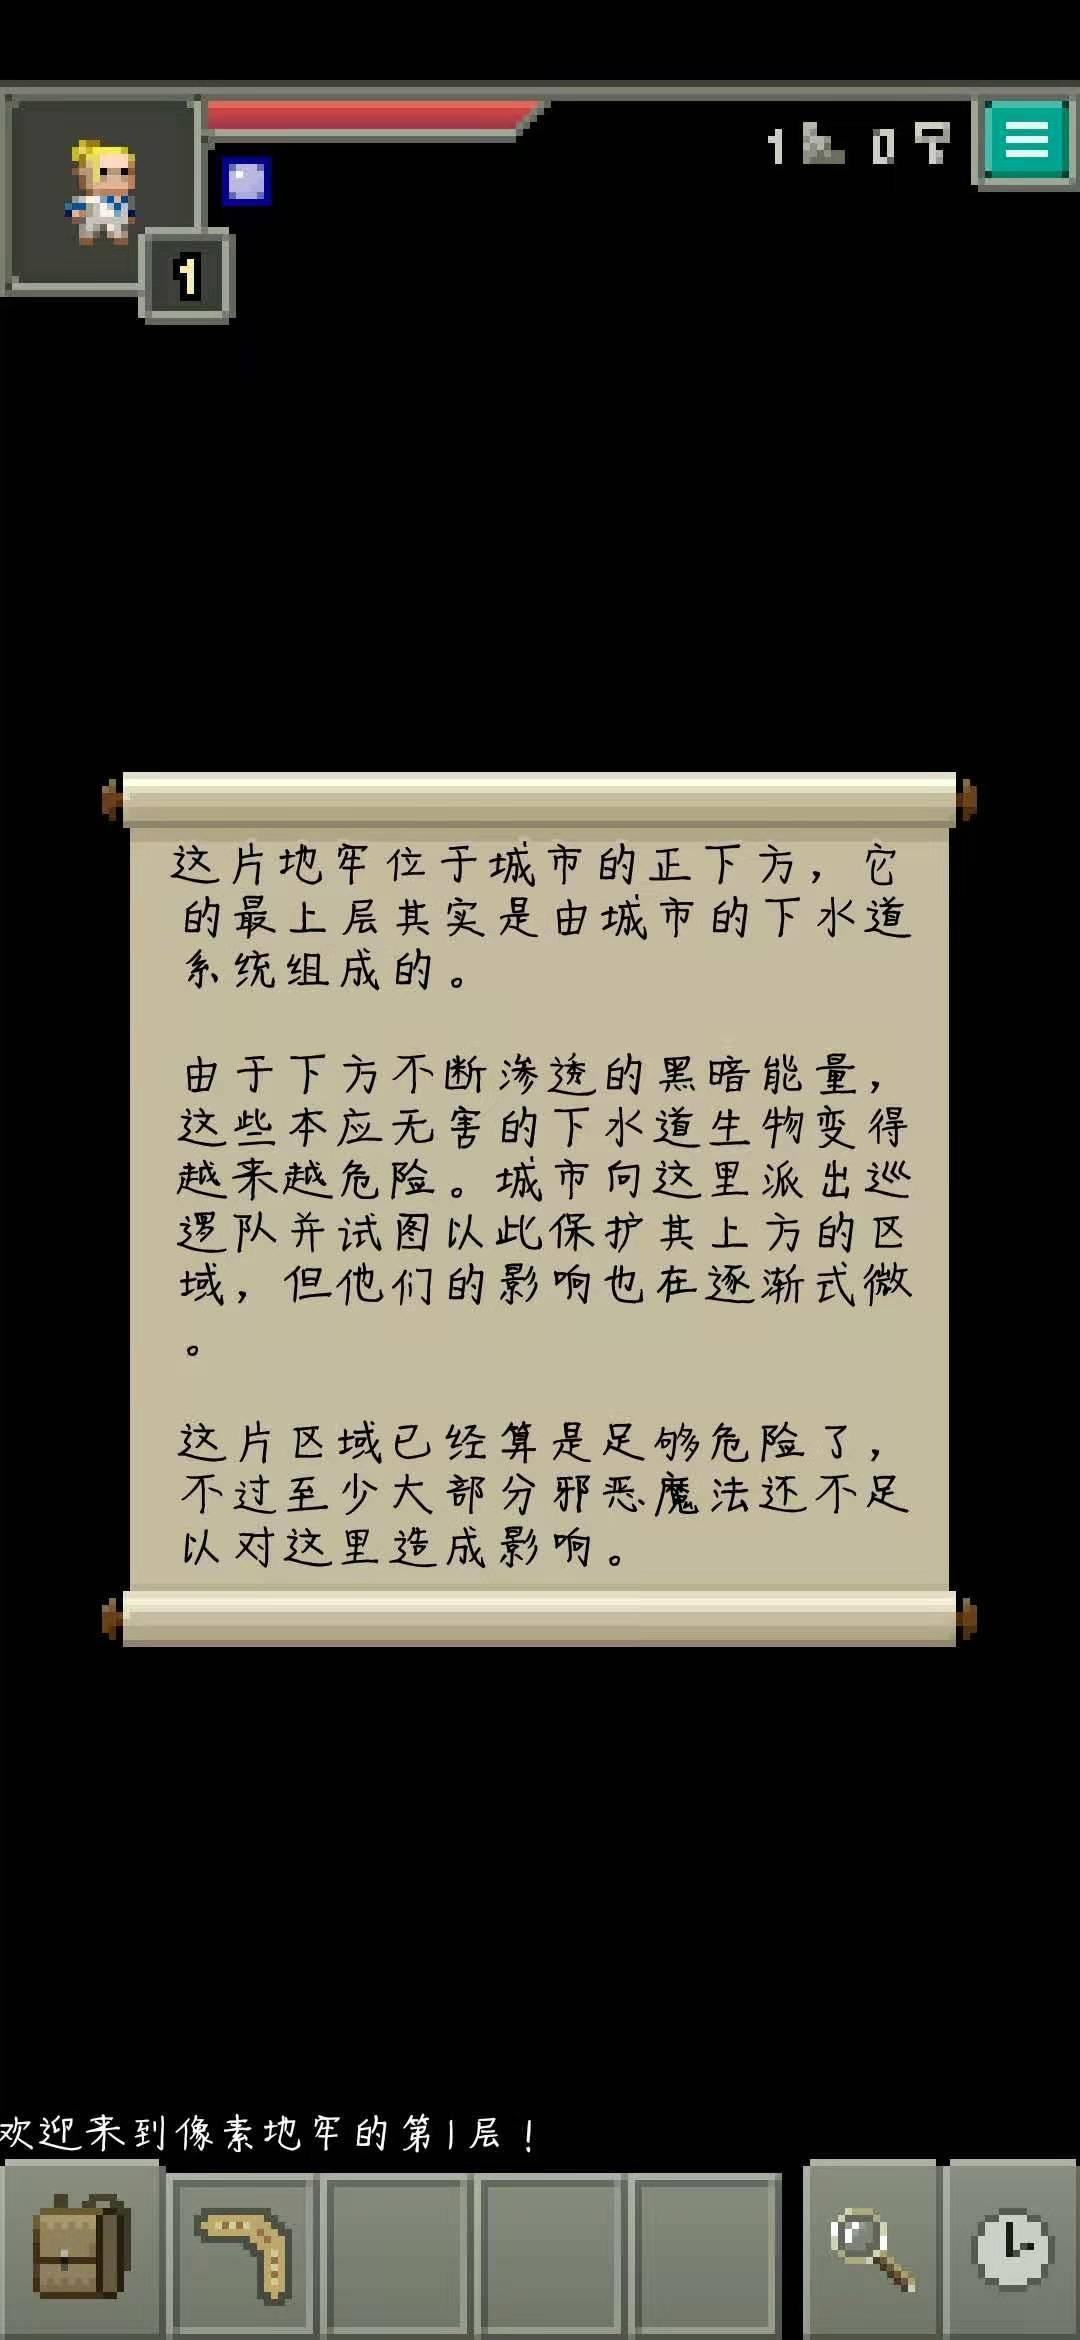 1 0
1
这片地牢位于城市的正下方，它
的最上层其实是由城市的下水道
系统组成的。
由于下方不断渗透的黑暗能量，
这些本应无害的下水道生物变得
越来越危险。城市向这里派出巡
逻队并试图以此保护其上方的区
域，但他们的影响也在逐渐式微
。
这片区域已经算是足够危险了，
不过至少大部分邪恶魔法还不足
以对这里造成影响。
欢迎来到像素地牢的第1层！